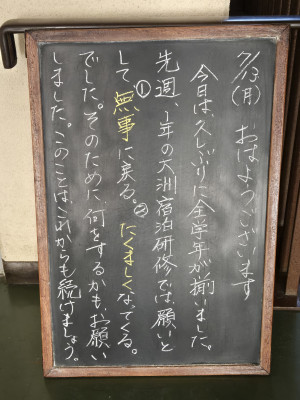 7/13(月) おはようございます
今日は、久しぶりに全学年が揃いました。
先週、1年の大洲宿泊研修では、願いと
して①無事に戻る。②たくましくなってくる。
でした。そのために、何をするかも、お願い
しました。このことは、これからも続けましょう。